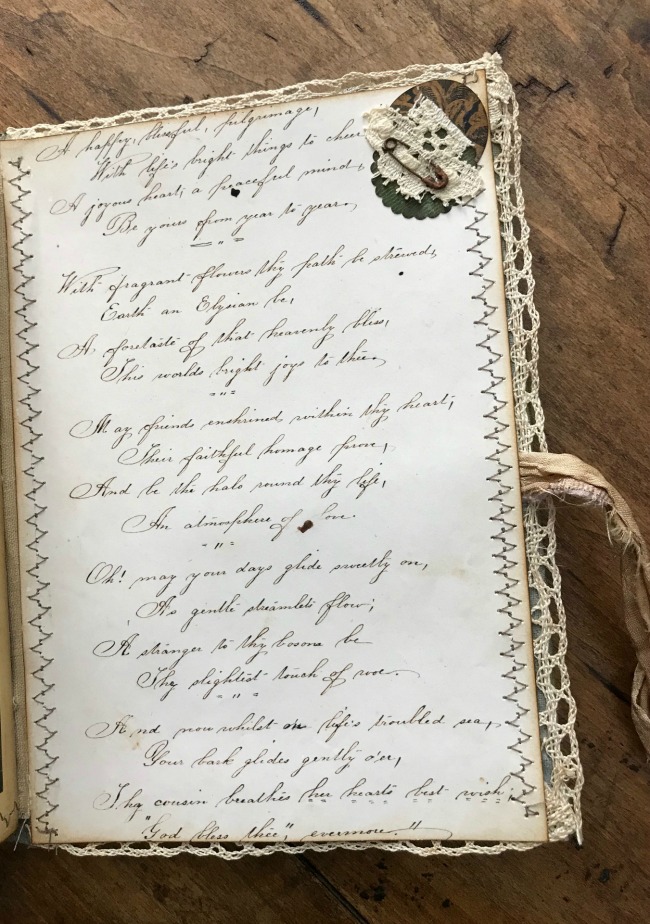 A happy, blissful, pilgrimage,
With life's bright things to cheer
A joyous heart, a peaceful mind,
Be yours from year to year,
With fragrant flowers thy path be strewed,
Earth an Elysian be,
A foretaste of that heavenly bliss,
This worlds bright joys to thee,
May friends enshrined within thy heart,
Their faithful homage prove,
And be the halo round thy life,
An atmosphere of love.
Oh! may your days glide sweetly on,
As gentle streamlets flow,
A stranger to thy bosom be
The slightest touch of woe.
And now whilst on life's troubled sea,
Your bark glides gently o'er,
Thy cousin breathes her hearts best wish,
"God bless thee", evermore."